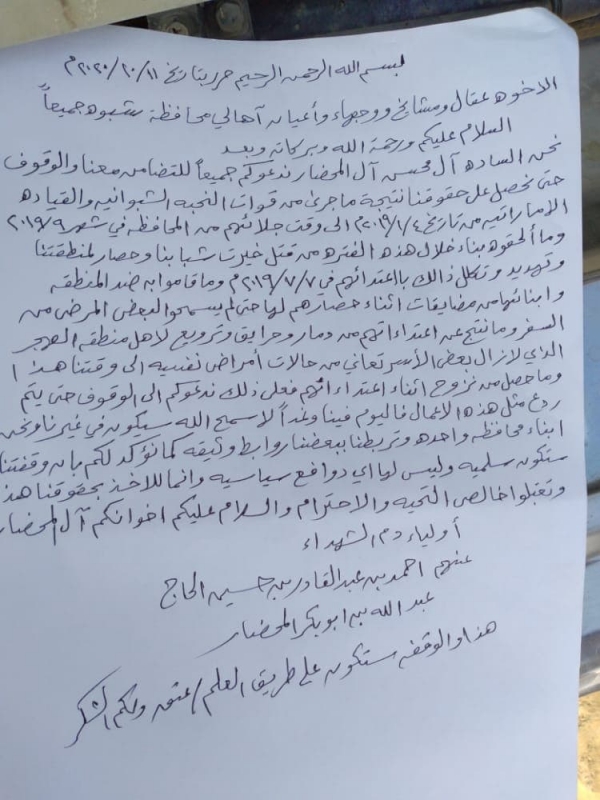 بسم الله الرحمن الرحيم حرر بتاريخ ١١/٢٠/٢٠٢٠م
الاخوه عقال ومشائخ ووجهاء وأعيان أهالي محافظة شبوه جميعاً
السلام عليكم ورحمة الله وبركاته وبعد
نحن الساده آل محسن آل المحضار ندعوكم جميعاً للتضامن معنا والوقوف
حتى نحصل على حقوقنا نتيجة ما جرى من قوات النخبه الشبوانيه والقياده
الاماراتيه من تاريخ ٢٠١٩/١/٤م الى وقت جلائهم من المحافظه في شهر ٢٠١٩/٩
وما ألحقوه بناء خلال هذه الفتره من قتل خيرت شبابنا وحصار لمنطقتنا
وتهديد وتكلل ذالك بااعتدائهم في ٢٠١٩/٧/٧م وما قاموا به ضد المنطقه
وابنائها من مضايقات اثناء حصارهم لها حتى لم يسمحوا لبعض المرضى من
السفر وما نتج عن اعتداءاتهم من دمار وحرايق وترويع لاهل منطقه الهجر
الذي لازال بعض الأسر تعاني من حالات أمراض نفسيه الى وقتنا هذا
وما حصل من نزوح اثناء اعتداءاتهم فعلى ذلك ندعوكم الى الوقوف حتى يتم
ردع مثل هذه الاعمال فاليوم فينا وغداً لا سمح الله سيكون في غيرنا ونحن
ابناء محافظه واحده وتربطنا ببعضنا روابط وثيقه كما نؤكد لكم بان وقفتنا
ستكون سلميه وليس لها اي دوافع سياسيه وانما للاخذ بحقوقنا هذا
وتقبلوا خالص التحيه والاحترام والسلام عليكم اخوانكم آل المحضار
أولياء دم الشهداء
عنهم احمد بن عبدالقادر بن حسين الحاج
عبدالله بن ابوبكر المحضار
هذا والوقفه ستكون على طريق العلم / عتق ولكم الشكر